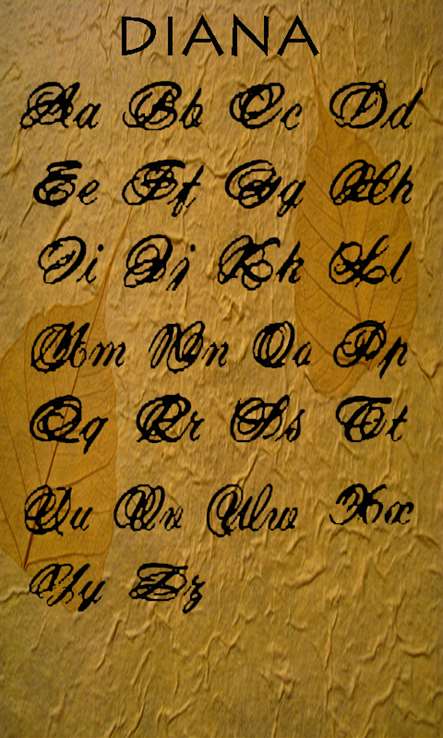 DIANA
Aa Bb Cc Dd
Ee Ff Gg Hh
Ii Jj Kk Ll
Mm Nn Oo Pp
Qq Rr Ss Tt
Uu Vv Ww Xx
Yy Zz